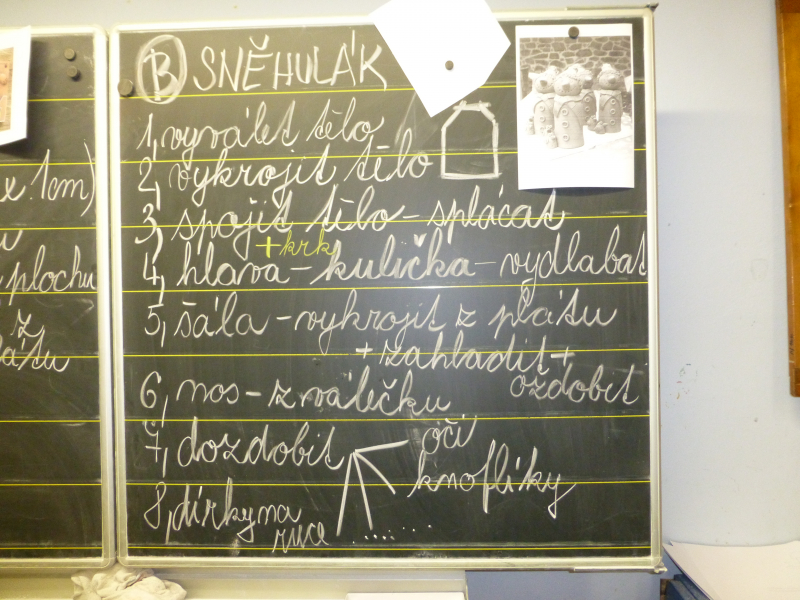 x 1cm)
plochu
z
B SNĚHULÁK
1, vyválet tělo
2, vykrojit tělo
3, spojit tělo - splácat
+ krk
4, hlava - kulička - vydlabat
5, šála - vykrojit z plátu
+ zahladit +
ozdobit
6, nos - z válečku
7, dozdobit
oči
knoflíky
8, dírky na
ruce .......